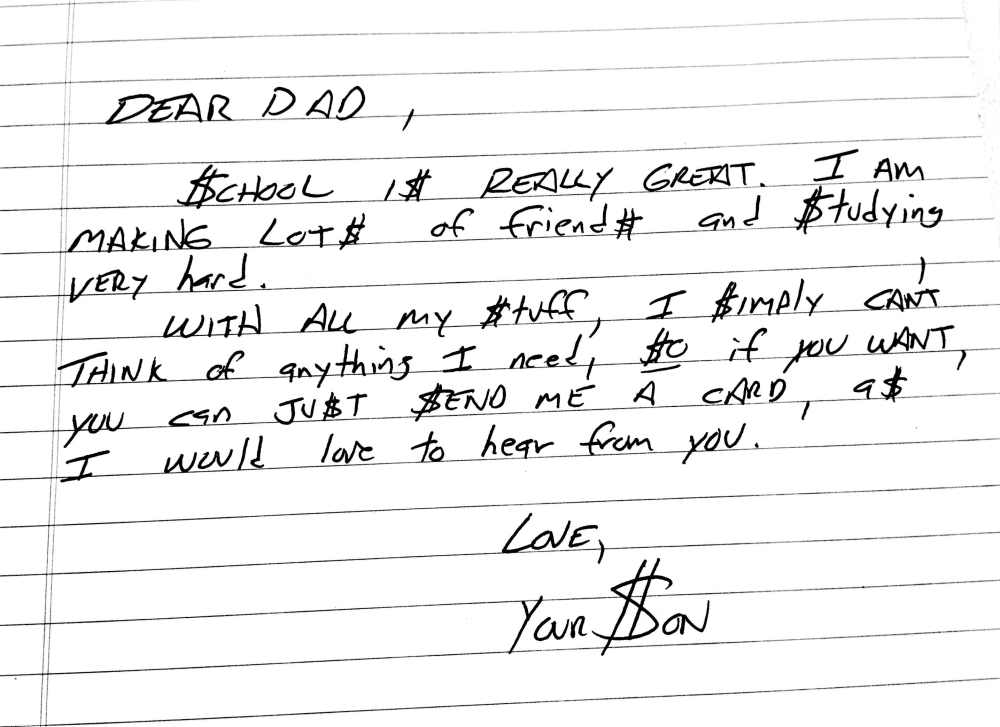 DEAR DAD,
$CHOOL I$ REALLY GREAT. I AM
MAKING LOT$ of friend$ and $tudying
VERY hard.
WITH ALL my $tuff, I $IMPly CAN'T
THINK of anything I need, $O if you WANT,
you can JU$T $END ME A CARD, a$
I would love to hear from you.
LOVE,
Your $ON